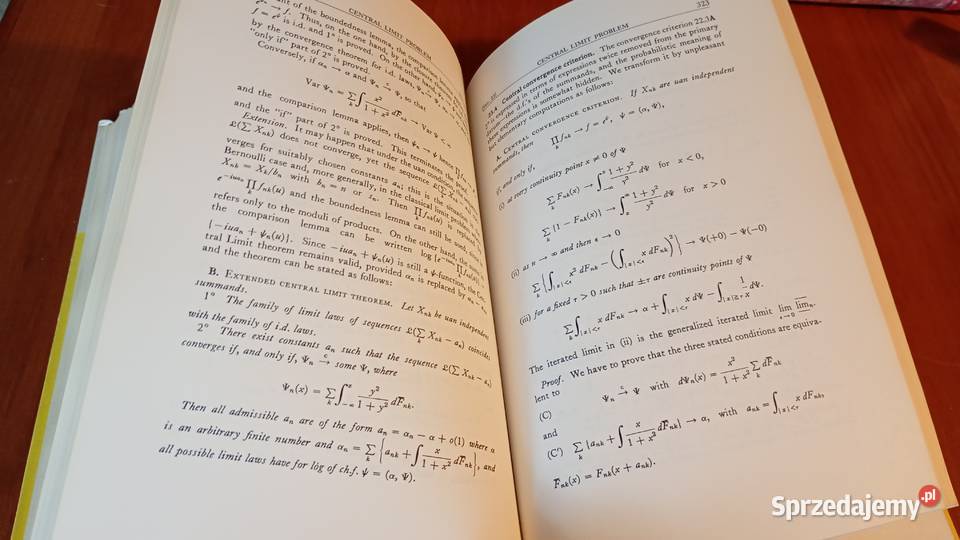 CENTRAL LIMIT PROBLEM
ant of the boundedness lemma, the comparison lemma
f = e^ψ is i.d. and 1° is proved. On the other
by the convergence theorem for i.d. laws,
"only if" part of 2° is proved.
Conversely, if αₙ → α and Ψₙ →ᶜ Ψ, so that
Var Ψₙ = ∑ₖ ∫ x²/(1 + x²) dF̄ₙₖ → Var Ψ < ∞
and the comparison lemma applies, then ψₙ → ψ hence ∏ fₙₖ →
and the "if" part of 2° is proved. This terminates the proof.
Extension. It may happen that under the uan condition the
£(∑ Xₙₖ) does not converge, yet the sequence £(∑ Xₙₖ
verges for suitably chosen constants aₙ; this is the situation in
Bernoulli case and, more generally, in the classical limit problem
Xₙₖ = Xₖ/bₙ with bₙ = n or sₙ. Then ∏ fₙₖ(u) is replaced
e^{-iuaₙ} ∏ₖ fₙₖ(u) and the boundedness lemma can still be used, since
refers only to the moduli of products. On the other hand, the
the comparison lemma can be written log {e^{-iuaₙ} ∏ₖ fₙₖ(u)}
{−iuaₙ + ψₙ(u)}. Since −iuaₙ + ψₙ(u) is still a ψ-function, the Cen-
tral Limit theorem remains valid, provided αₙ is replaced by αₙ − aₙ,
and the theorem can be stated as follows:
B. EXTENDED CENTRAL LIMIT THEOREM. Let Xₙₖ be uan independent
summands.
1° The family of limit laws of sequences £(∑ₖ Xₙₖ − aₙ) coincides
with the family of i.d. laws.
2° There exist constants aₙ such that the sequence £(∑ Xₙₖ − aₙ)
converges if, and only if, Ψₙ →ᶜ some Ψ, where
Ψₙ(x) = ∑ₖ ∫_{−∞}^{x} y²/(1 + y²) dF̄ₙₖ.
Then all admissible aₙ are of the form aₙ = αₙ − α + o(1) where α
is an arbitrary finite number and αₙ = ∑ₖ {aₙₖ + ∫ x/(1 + x²) dF̄ₙₖ}, and
all possible limit laws have for log of ch.f. ψ = (α, Ψ).
CENTRAL LIMIT PROBLEM 323
23.4 Central convergence criterion. The convergence criterion 22.3A
2° is expressed in terms of expressions twice removed from the primary
the d.f.'s of the summands, and the probabilistic meaning of
these expressions is somewhat hidden. We transform it by unpleasant
but elementary computations as follows:
A. CENTRAL CONVERGENCE CRITERION. If Xₙₖ are uan independent
summands, then ∏ₖ fₙₖ → f = e^ψ, ψ = (α, Ψ),
if, and only if,
(i) at every continuity point x ≠ 0 of Ψ
∑ₖ Fₙₖ(x) → ∫_{−∞}^{x} (1 + y²)/y² dΨ for x < 0,
∑ₖ {1 − Fₙₖ(x)} → ∫_{x}^{∞} (1 + y²)/y² dΨ for x > 0
(ii) as n → ∞ and then ε → 0
∑ₖ {∫_{|x|<ε} x² dFₙₖ − (∫_{|x|<ε} x dFₙₖ)²} → Ψ(+0) − Ψ(−0)
(iii) for a fixed τ > 0 such that ±τ are continuity points of Ψ
∑ₖ ∫_{|x|<τ} x dFₙₖ → α + ∫_{|x|<τ} x dΨ − ∫_{|x|≥τ} 1/x dΨ.
The iterated limit in (ii) is the generalized iterated limit lim_{ε→0} lim̲̅ₙ.
Proof. We have to prove that the three stated conditions are equiva-
lent to
(C) Ψₙ →ᶜ Ψ with dΨₙ(x) = x²/(1 + x²) ∑ₖ dF̄ₙₖ
and
(C′) ∑ₖ {aₙₖ + ∫ x/(1 + x²) dF̄ₙₖ} → α, with aₙₖ = ∫_{|x|<τ} x dFₙₖ,
F̄ₙₖ(x) = Fₙₖ(x + aₙₖ).
Sprzedajemy.pl